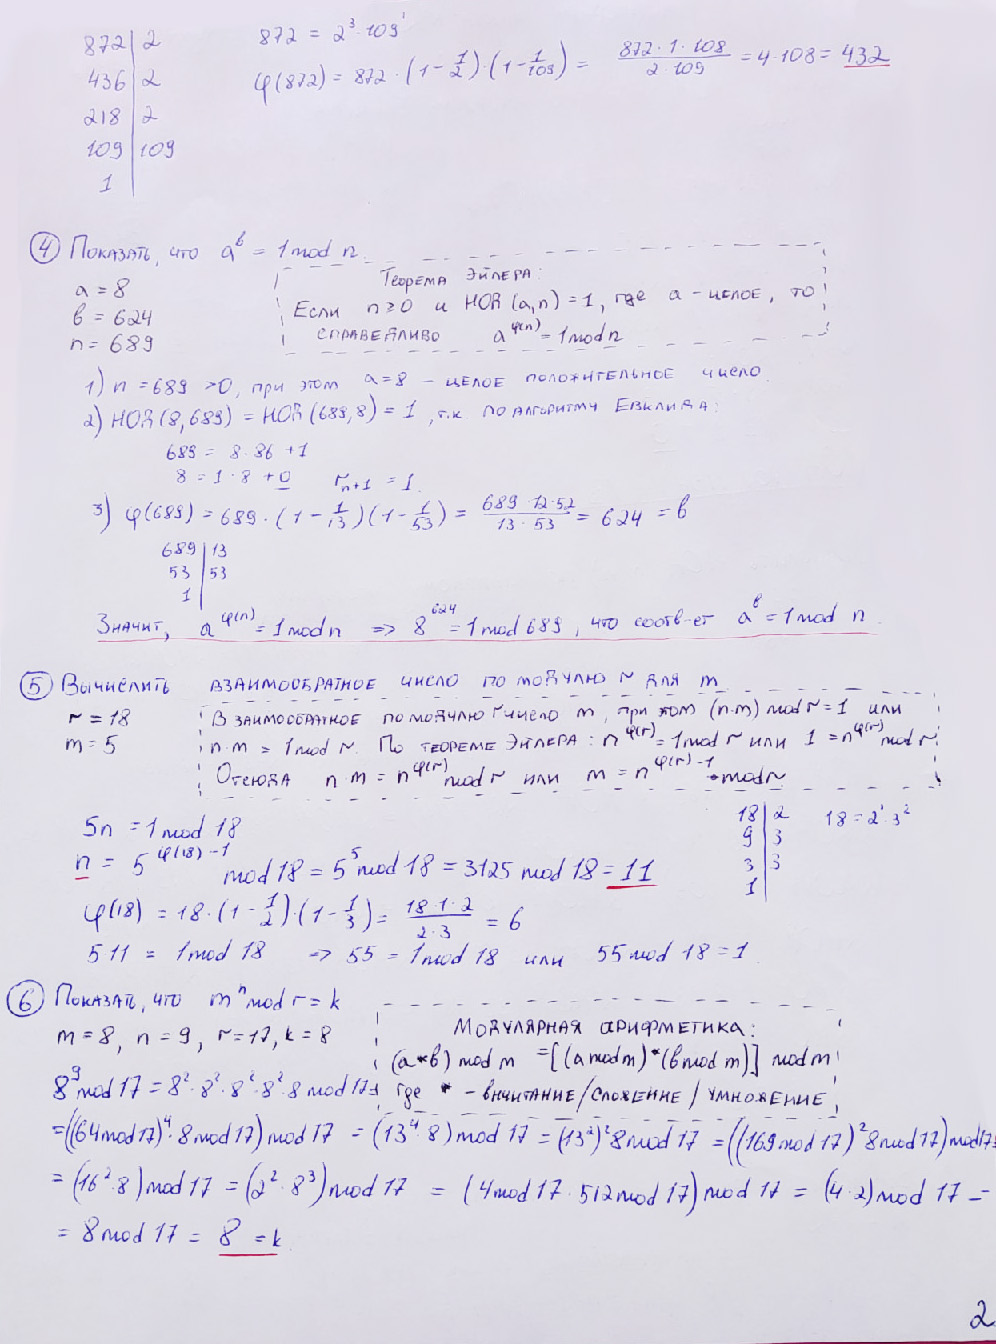 872 | 2
436 | 2
218 | 2
109 | 109
1
872 = 2³·109¹
φ(872) = 872 · (1 - 1/2) · (1 - 1/109) = (872 · 1 · 108)/(2 · 109) = 4·108 = 432
④ Показать, что aᵇ = 1 mod n.
a = 8
b = 624
n = 689
Теорема Эйлера:
Если n ≥ 0 и НОД (a, n) = 1, где a - целое, то
справедливо a^φ(n) = 1 mod n
1) n = 689 > 0, при этом a = 8 - целое положительное число
2) НОД (8, 689) = НОД (689, 8) = 1, т.к по алгоритму Евклида:
689 = 8·86 + 1
8 = 1·8 + 0 rₙ₊₁ = 1.
3) φ(689) = 689 · (1 - 1/13) (1 - 1/53) = (689 · 12 · 52)/(13 · 53) = 624 = b
689 | 13
53 | 53
1
Значит, a^φ(n) = 1 mod n => 8^624 = 1 mod 689, что соотв-ет aᵇ = 1 mod n.
⑤ Вычислить взаимообратное число по модулю r для m
r = 18
m = 5
Взаимообратное по модулю r число m, при этом (n·m) mod r = 1 или
n·m = 1 mod r. По теореме Эйлера: n^φ(r) = 1 mod r или 1 = n^φ(r) mod r.
Отсюда n·m = n^φ(r) mod r или m = n^φ(r)-1 mod r
5n = 1 mod 18
n = 5^φ(18)-1 mod 18 = 5⁵ mod 18 = 3125 mod 18 = 11
18 | 2
9 | 3
3 | 3
1
18 = 2¹·3²
φ(18) = 18·(1 - 1/2)·(1 - 1/3) = (18·1·2)/(2·3) = 6
5·11 = 1 mod 18 => 55 = 1 mod 18 или 55 mod 18 = 1
⑥ Показать, что mⁿ mod r = k
m = 8, n = 9, r = 17, k = 8
Модулярная арифметика:
(a * b) mod m = [(a mod m) * (b mod m)] mod m
где * - вычитание / сложение / умножение
8⁹ mod 17 = 8²·8²·8²·8²·8 mod 17 =
= ((64 mod 17)⁴·8 mod 17) mod 17 = (13⁴·8) mod 17 = (13²)²8 mod 17 = ((169 mod 17)²8 mod 17) mod 17 =
= (16²·8) mod 17 = (2²·8³) mod 17 = (4 mod 17 · 512 mod 17) mod 17 = (4·2) mod 17 =
= 8 mod 17 = 8 = k
2